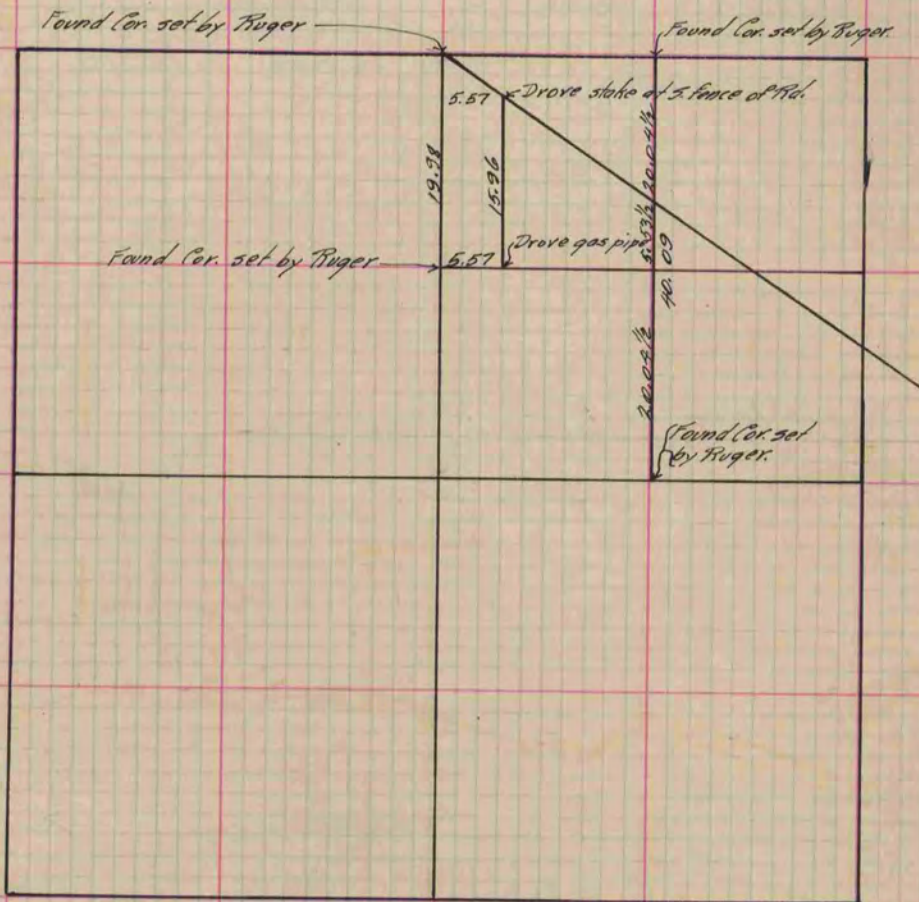 Found Cor. set by Ruger
Found Cor. set by Ruger.
5.57
Drove stake at S. fence of Rd.
20.04½
19.98
15.96
5.53½
Found Cor. set by Ruger
5.57
Drove gas pipe
40.09
20.04½
Found Cor. set
by Ruger.